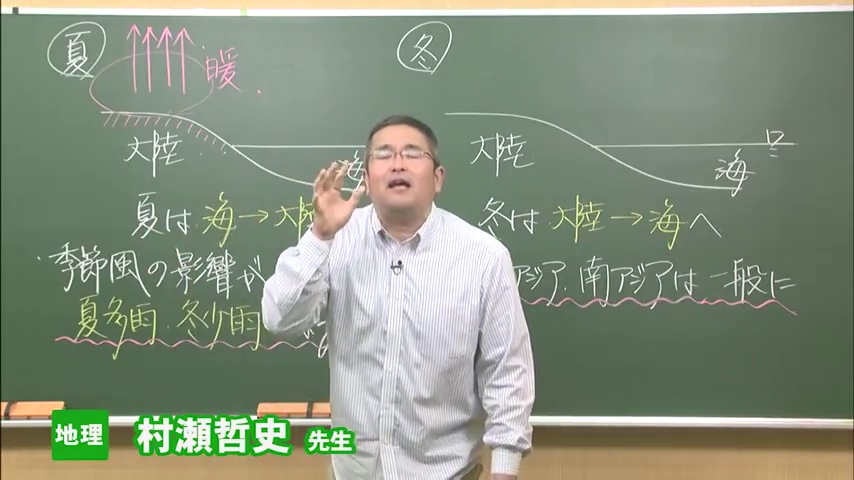 夏
暖
冬
大陸
海
大陸
海
夏は 海→大陸
冬は 大陸→海へ
季節風の影響が
アジア、南アジアは一般に
夏多雨・冬少雨
地理 村瀬哲史 先生